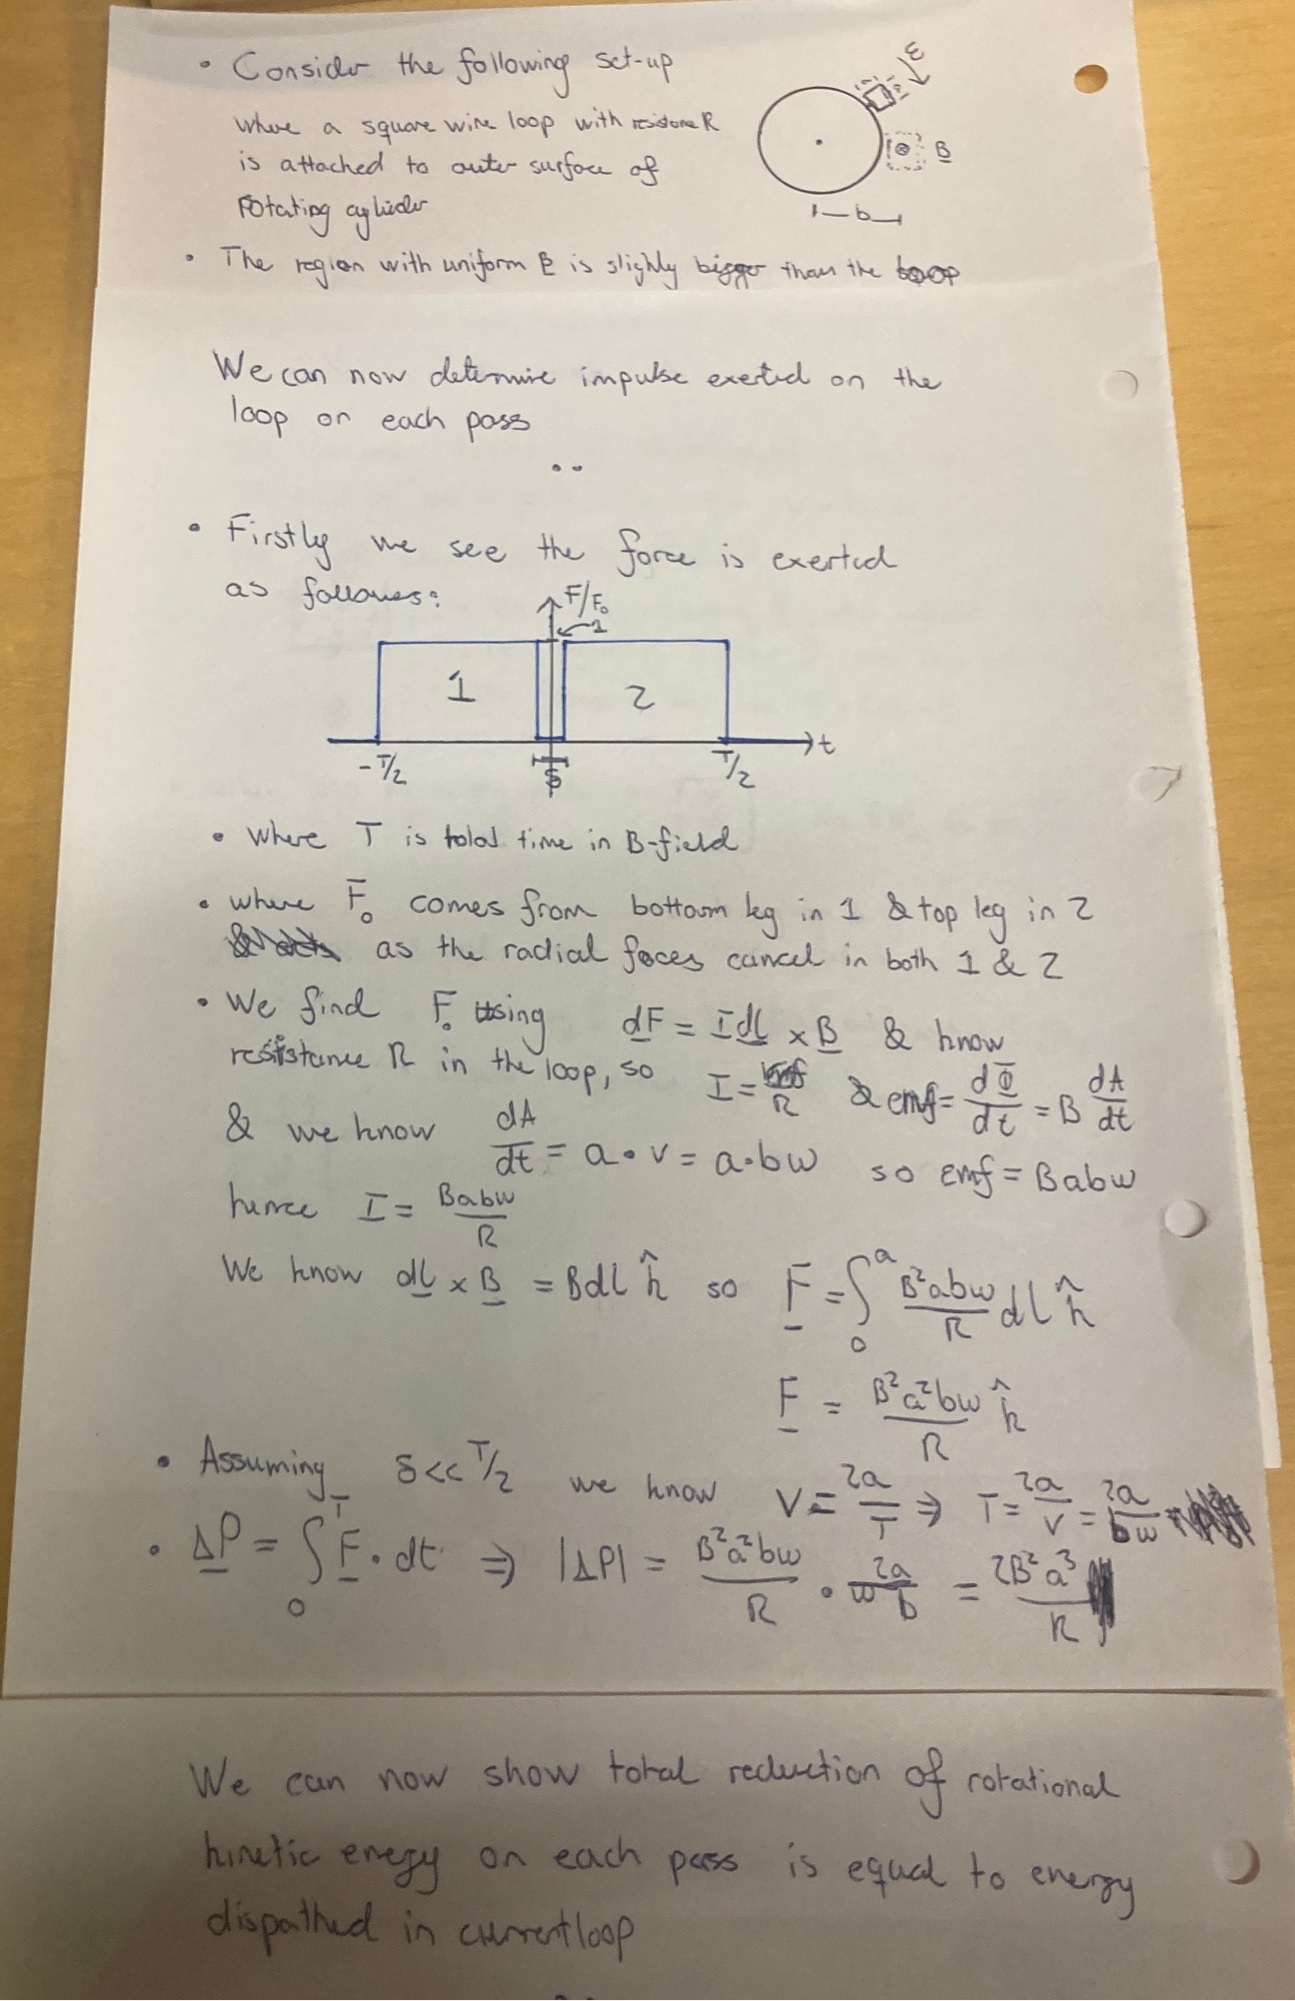 • Consider the following set-up
where a square wire loop with resistance R
is attached to outer surface of
rotating cylinder
ω
B
b
• The region with uniform B is slighly bigger than the loop
We can now determine impulse exerted on the
loop on each pass
• Firstly we see the force is exerted
as follows:
F/F₀
1
1
2
t
-T/2
δ
T/2
• where T is total time in B-field
• where F₀ comes from bottom leg in 1 & top leg in 2
as the radial forces cancel in both 1 & 2
• We find F₀ using dF = Idl × B & know
resistance R in the loop, so I = emf/R & emf = dΦ/dt = B dA/dt
& we know dA/dt = a · v = a · bω so emf = Babω
hence I = Babω/R
We know dl × B = Bdl k̂ so F = ∫₀ᵃ B²abω/R dl k̂
F = B²a²bω/R k̂
• Assuming δ << T/2 we know V = 2a/T ⇒ T = 2a/V = 2a/bω
• ΔP = ∫₀ᵀ F · dt ⇒ |ΔP| = B²a²bω/R · 2a/ωb = 2B²a³/R
We can now show total reduction of rotational
kinetic energy on each pass is equal to energy
dispathed in current loop